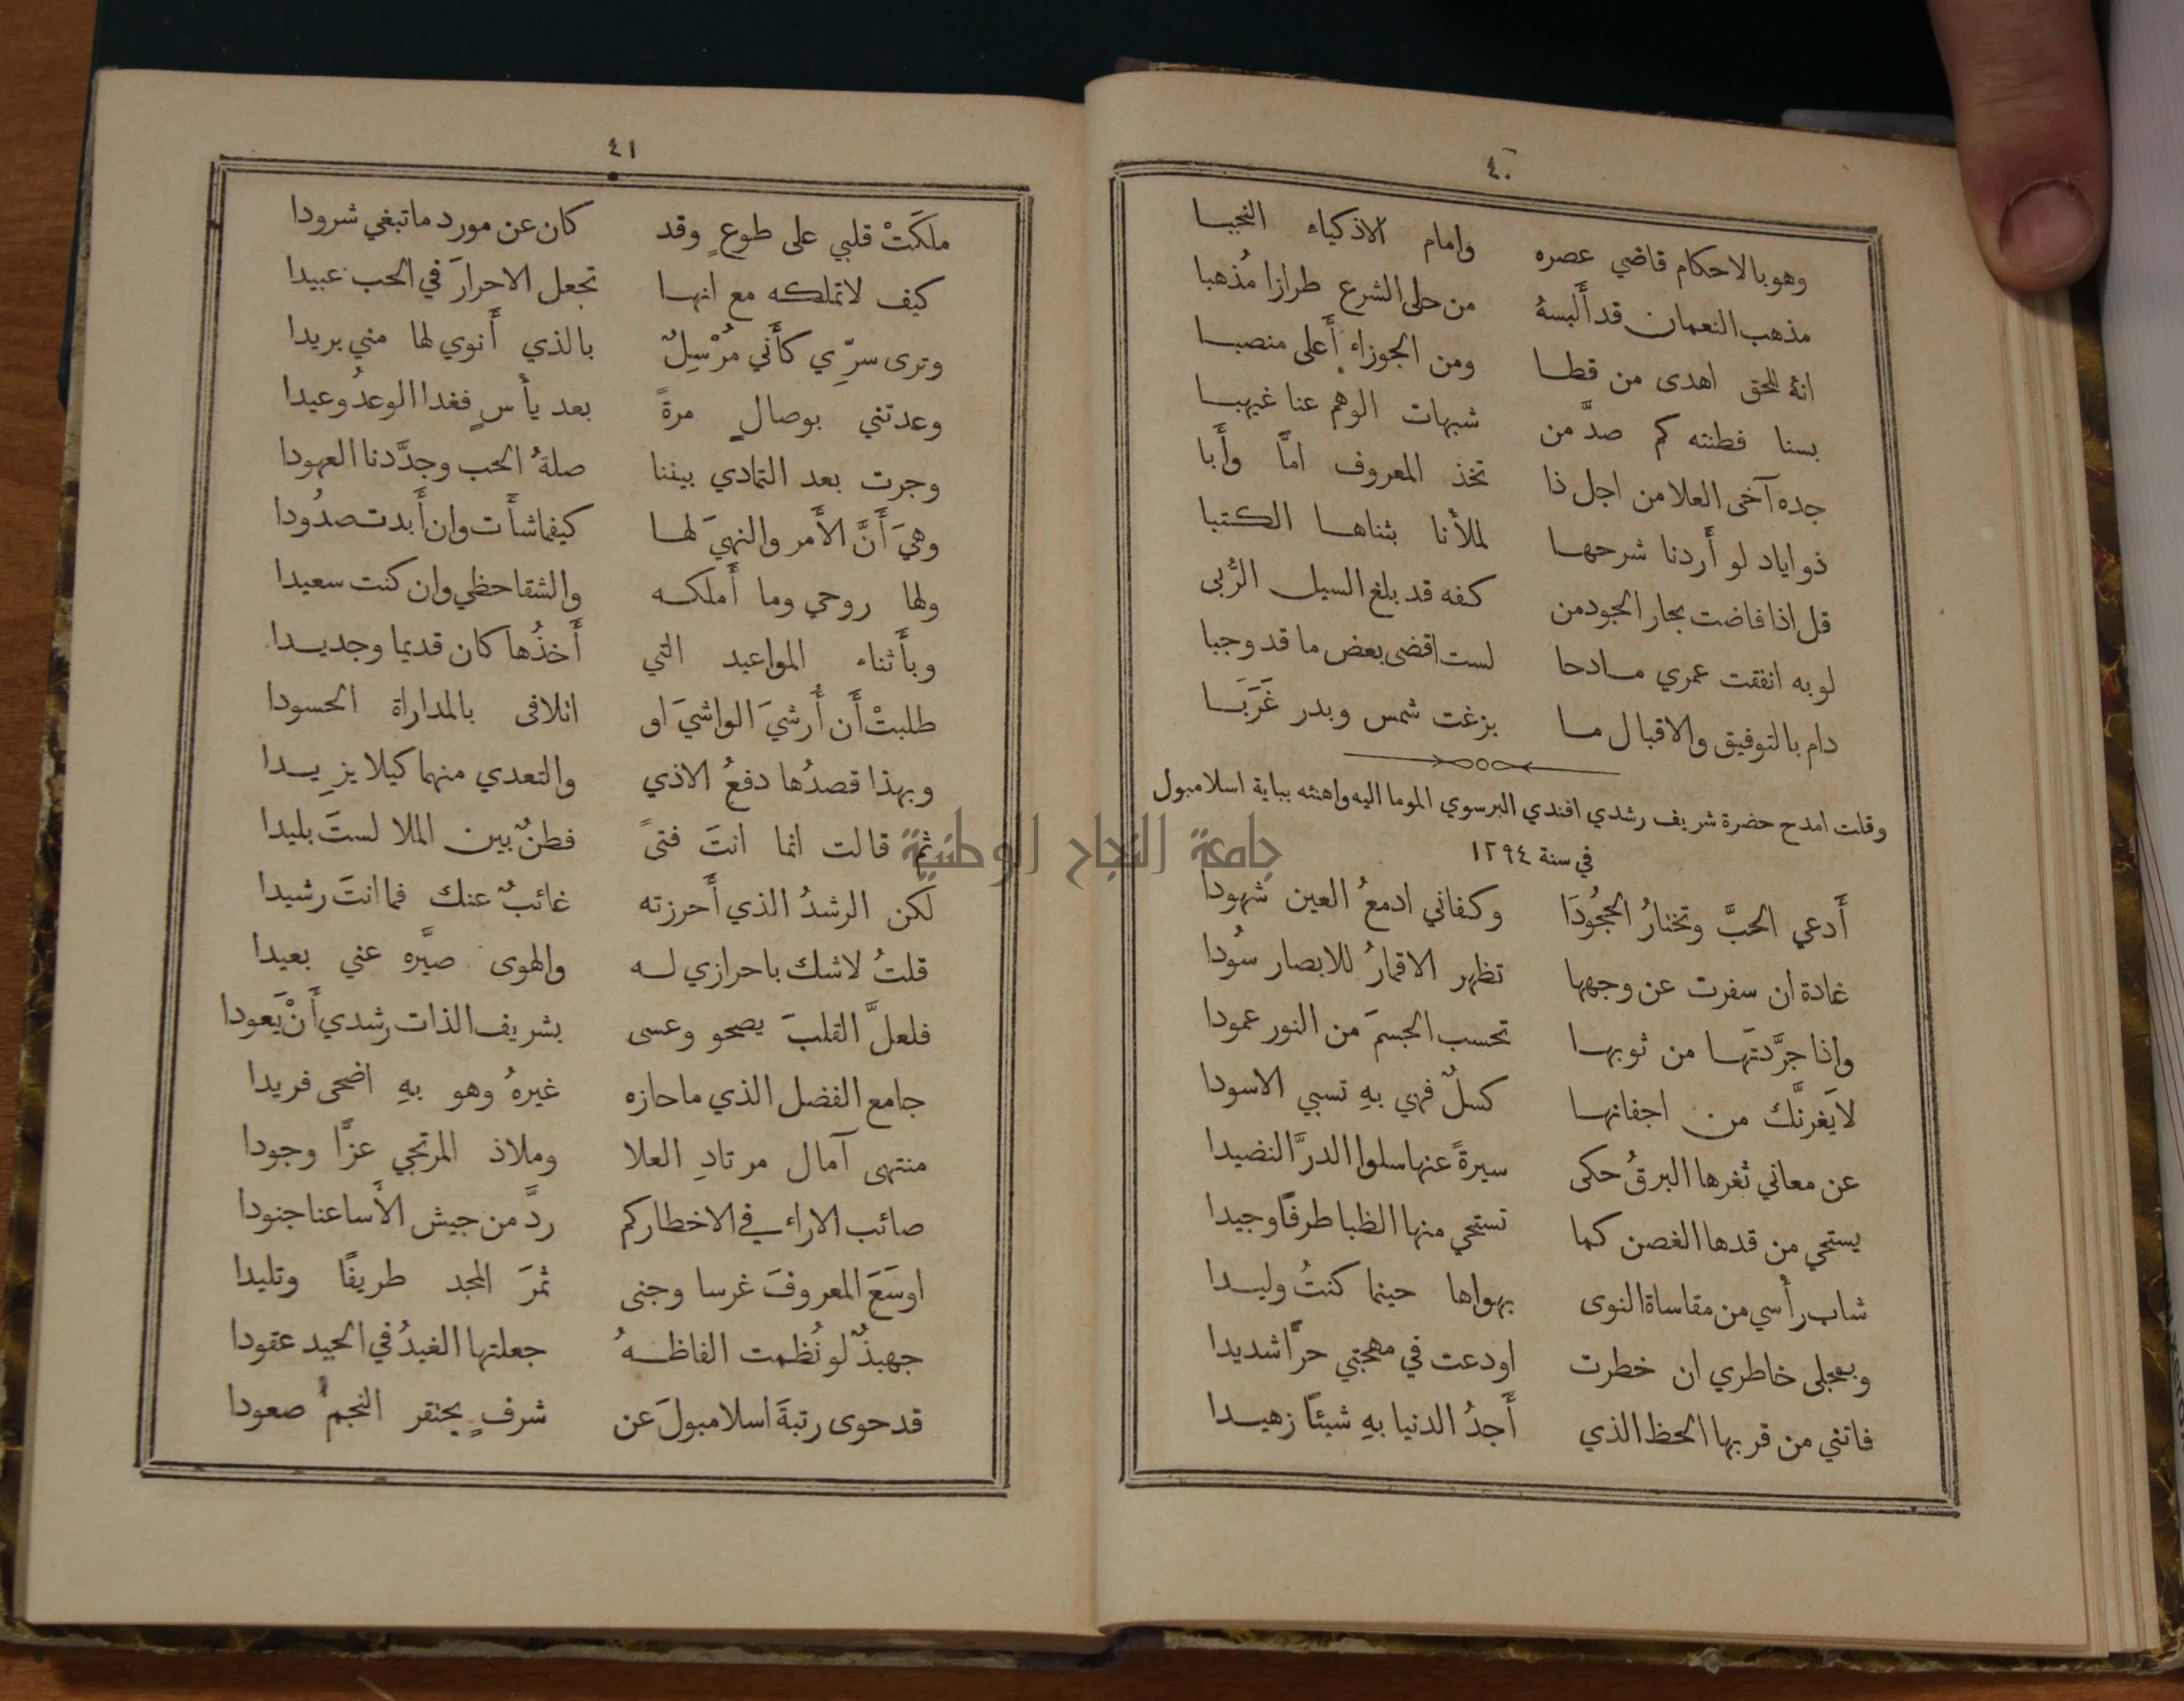 ٤٠
وهو بالاحكام قاضي عصره وامام الاذكياء النجبا
مذهب النعمان قد أَلبسهُ من حلى الشرع طرازا مُذهبا
انهُ للحق اهدى من قطا ومن الجوزاء أَعلى منصبا
بسنا فطنته كم صدَّ من شبهات الوهم عنا غيهبا
جده آخى العلا من اجل ذا تخذ المعروف امًّا وأَبا
ذو اياد لو أَردنا شرحها لملأنا بثناها الكتبا
قل اذا فاضت بحار الجود من كفه قد بلغ السيل الرُّبى
لو به انفقت عمري مادحا لست اقضى بعض ما قد وجبا
دام بالتوفيق والاقبال ما بزغت شمس وبدر غَرَبَا
وقلت امدح حضرة شريف رشدي افندي البرسوي الموما اليه واهنئه بباية اسلامبول
في سنة ١٢٩٤
أَدعي الحبَّ وتختارُ الجحُودَا وكفاني ادمعُ العين شهودا
غادة ان سفرت عن وجهها تظهر الاقمارُ للابصار سُودا
واذا جرَّدتَها من ثوبها تحسب الجسمَ من النور عمودا
لايَغرنَّك من اجفانها كسلٌ فهي بهِ تسبي الاسودا
عن معاني ثغرها البرقُ حكى سيرةً عنها سلوا الدرَّ النضيدا
يستحي من قدها الغصن كما تستحي منها الظبا طرفًا وجيدا
شاب رأسي من مقاساة النوى بهواها حينما كنتُ وليدا
وبمجلى خاطري ان خطرت اودعت في مهجتي حرًّا شديدا
فاتني من قربها الحظ الذي أَجدُ الدنيا بهِ شيئًا زهيدا
٤١
ملكَتْ قلبي على طوعٍ وقد كان عن مورد ما تبغي شرودا
كيف لاتملكه مع انها تجعل الاحرارَ في الحب عبيدا
وترى سرِّي كأَني مُرْسِلٌ بالذي أَنوي لها مني بريدا
وعدتني بوصالٍ مرةً بعد يأسٍ فغدا الوعدُ وعيدا
وجرت بعد التمادي بيننا صلةُ الحب وجدَّدنا العهودا
وهيَ أَنَّ الأَمر والنهيَ لها كيفما شأَت وان أَبدت صدُودا
ولها روحي وما أَملكه والشقا حظي وان كنت سعيدا
وبأَثناء المواعيد التي أَخذُها كان قديما وجديدا
طلبتْ أَن أُرشيَ الواشيَ او اتلافى بالمداراة الحسودا
وبهذا قصدُها دفعُ الاذي والتعدي منهما كيلا يزيدا
ثم قالت انما انتَ فتىً فطنٌ بين الملا لستَ بليدا
لكن الرشدُ الذي أَحرزته غائبٌ عنك فما انتَ رشيدا
قلتُ لاشك باحرازي له والهوى صيَّره عني بعيدا
فلعلَّ القلبَ يصحو وعسى بشريف الذات رشدي أَنْ يَعودا
جامع الفضل الذي ماحازه غيرهُ وهو بهِ اضحى فريدا
منتهى آمال مرتادِ العلا وملاذ المرتجي عزًّا وجودا
صائب الاراء في الاخطار كم ردَّ من جيش الأَسا عنا جنودا
اوسَعَ المعروفَ غرسا وجنى ثمرَ المجد طريفًا وتليدا
جهبذٌ لو نُظمت الفاظهُ جعلتها الغيدُ في الجيد عقودا
قد حوى رتبةَ اسلامبولَ عن شرفٍ يحتقر النجمُ صعودا
جامعة النجاح الوطنية